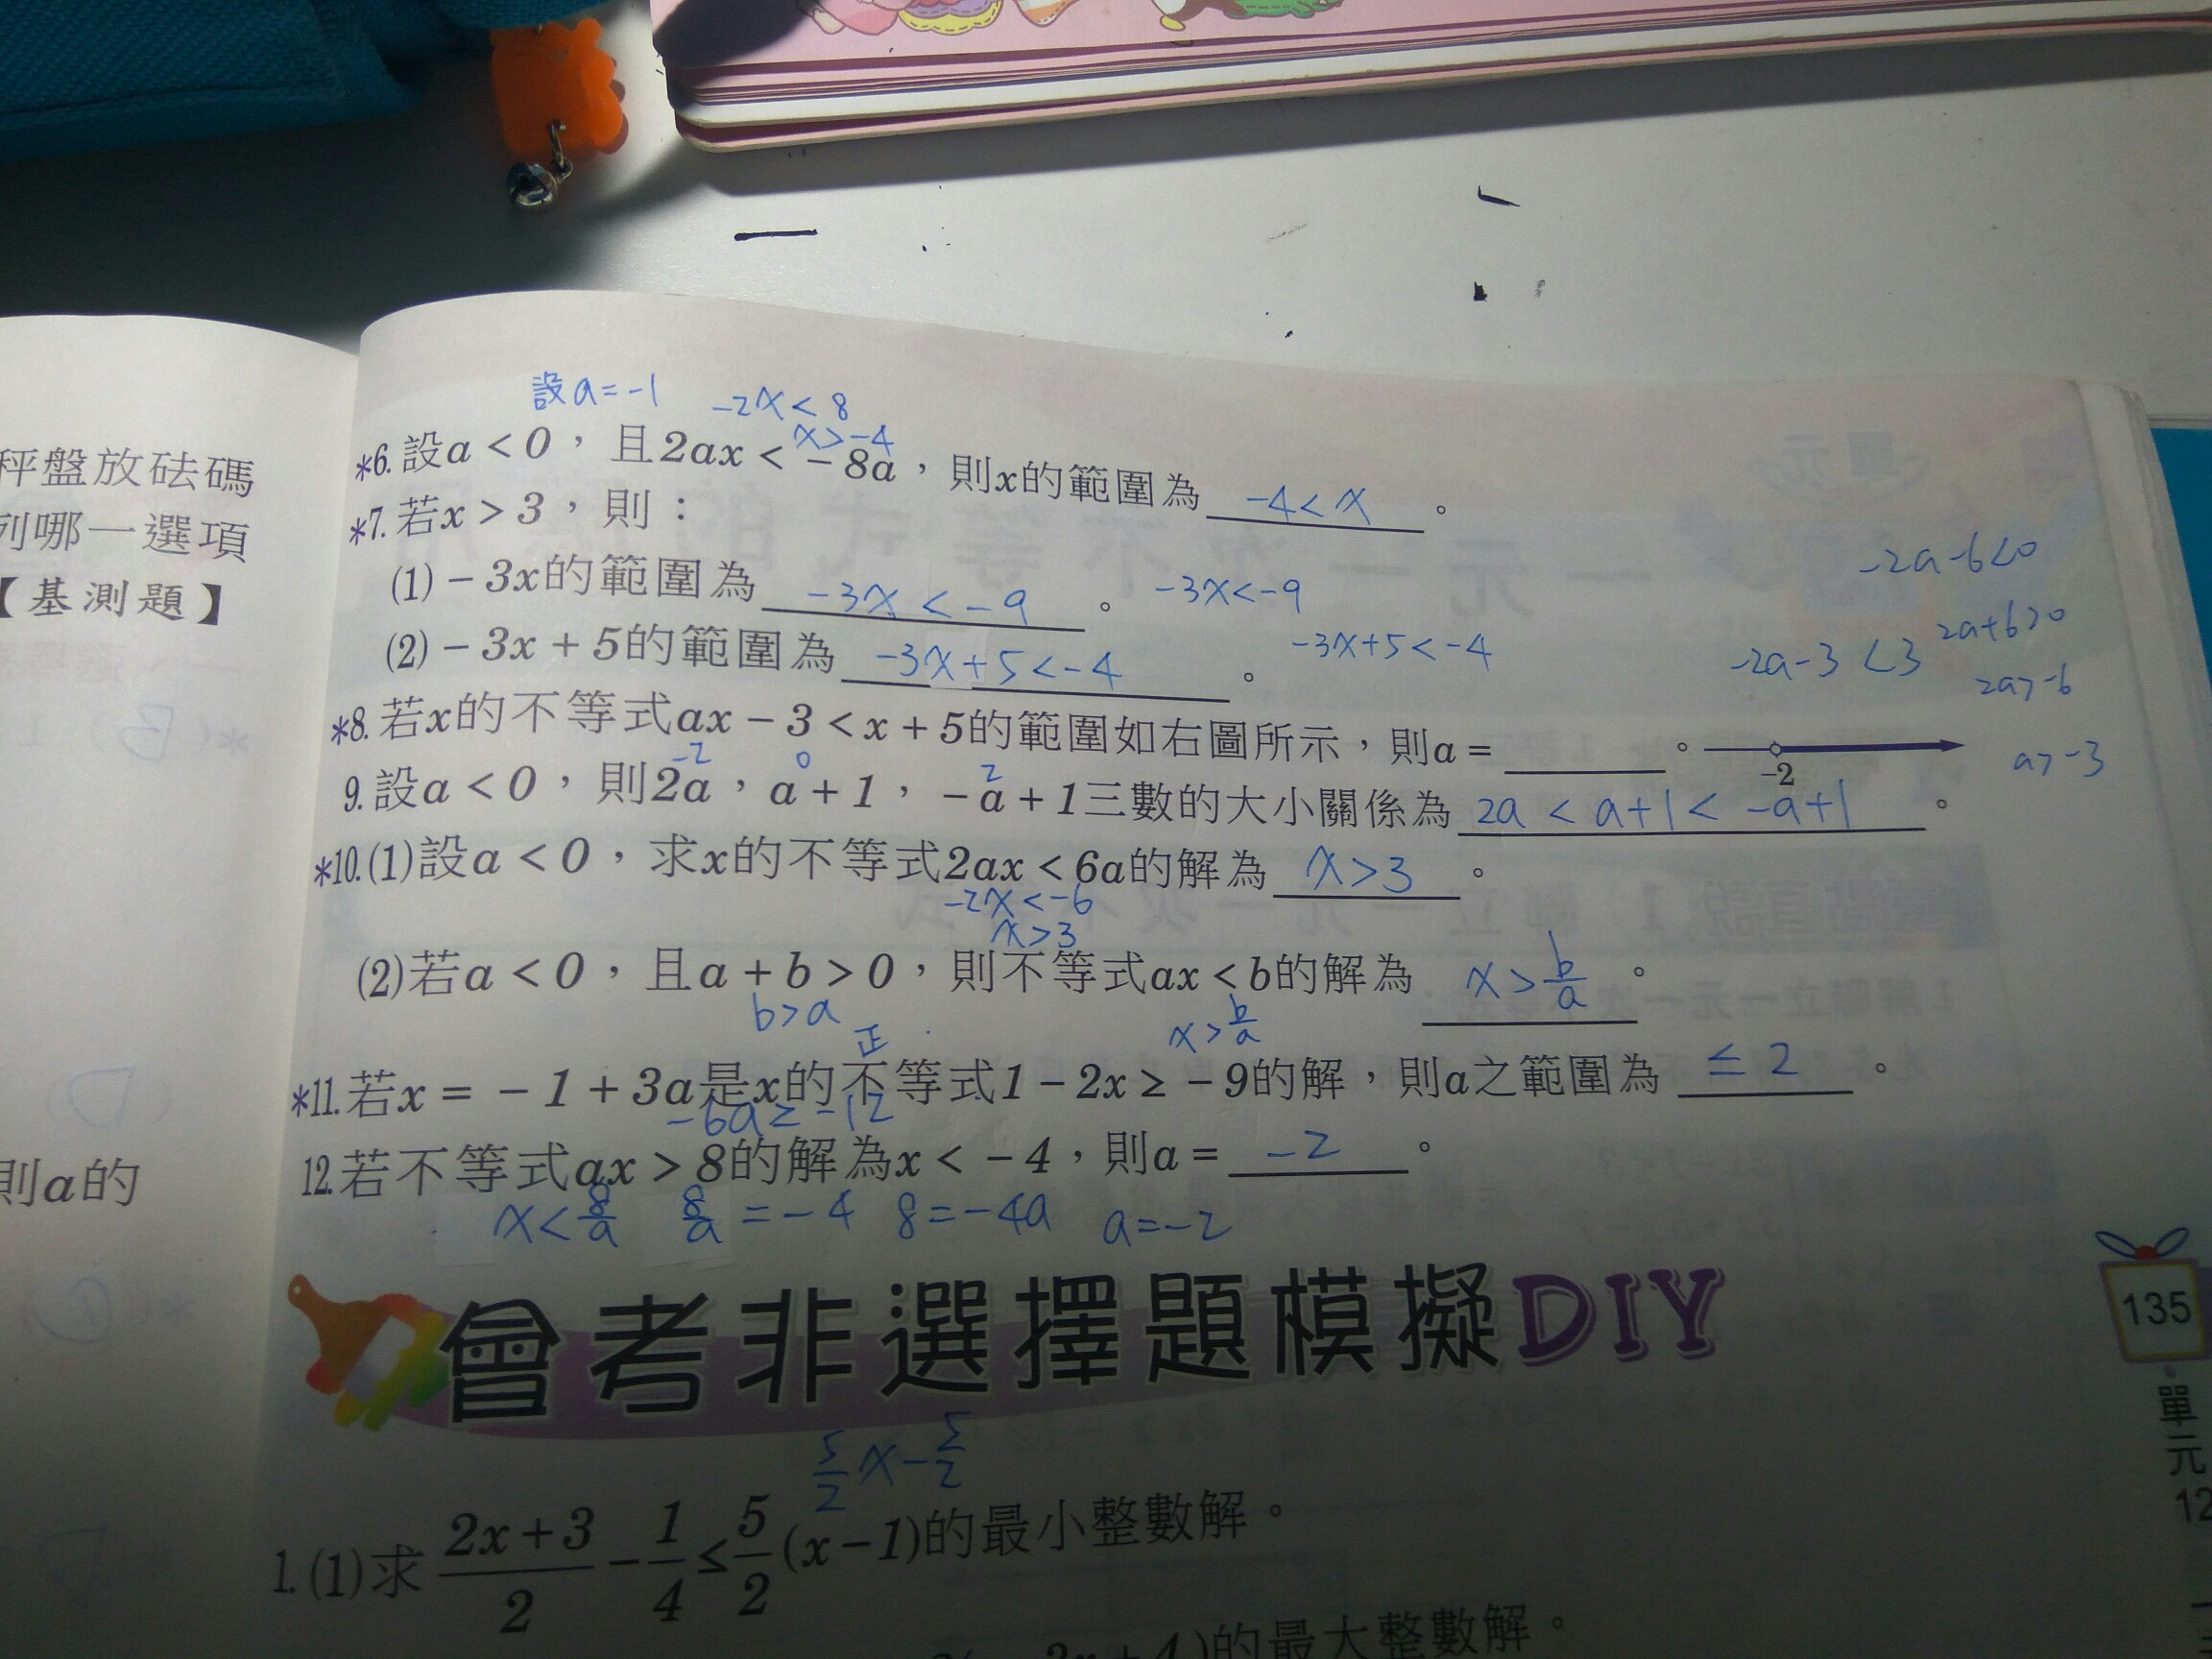 設a=-1 -2x<8
x>-4
*6.設a<0，且2ax<-8a，則x的範圍為 -4<x 。
*7.若x>3，則：
(1)-3x的範圍為 -3x<-9 。 -3x<-9
(2)-3x+5的範圍為 -3x+5<-4 。 -3x+5<-4
-2a-6<0
-2a-3<3 2a+6>0
2a>-6
a>-3
*8.若x的不等式ax-3<x+5的範圍如右圖所示，則a=＿＿＿。
-2
-2 0 2
9.設a<0，則2a，a+1，-a+1三數的大小關係為 2a<a+1<-a+1 。
*10.(1)設a<0，求x的不等式2ax<6a的解為 x>3 。
-2x<-6
x>3
(2)若a<0，且a+b>0，則不等式ax<b的解為 x>b/a 。
b>a x>b/a
正
*11.若x=-1+3a是x的不等式1-2x≥-9的解，則a之範圍為 ≤2 。
-6a≥-12
12.若不等式ax>8的解為x<-4，則a= -2 。
x<8/a 8/a=-4 8=-4a a=-2
會考非選擇題模擬DIY
5/2x-5/2
1.(1)求 (2x+3)/2-1/4≤5/2(x-1)的最小整數解。
)的最大整數解。
135
單元
12
秤盤放砝碼
列哪一選項
【基測題】
則a的